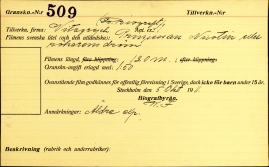 Gransko.-N:r 509 Tillverkn.-N:r
Tillverka. firma: Vitagraph
Filmens svenska titel (och den utländska): Prinsessan Nicotin eller
rökarens dröm
Filmens längd, före klippning: 130 m. efter klippning:
Gransko-avgift erlagd med: 1.50
Ovanstående film godkännes för offentlig förevisning i Sverige, dock icke för barn under 15 år.
Stockholm den 5 Okt. 191
Biografbyrån.
Anmärkningar: Äldre
Beskrivning (rubrik och underrubriker):